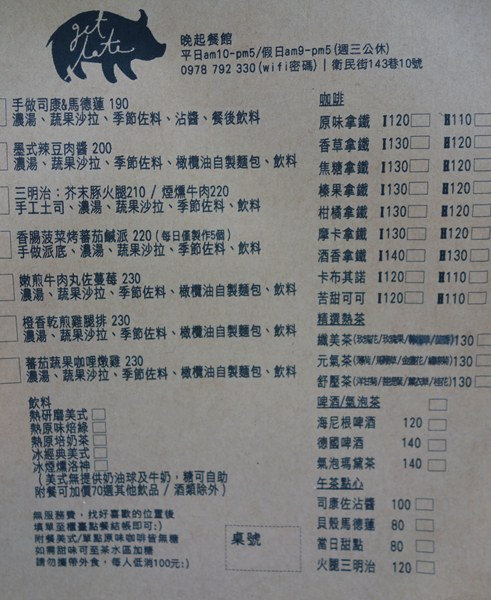 get
late
晚起餐館
平日am10-pm5/假日am9-pm5(週三公休)
0978 792 330(wifi密碼)|衛民街143巷10號
手做司康&馬德蓮 190
濃湯、蔬果沙拉、季節佐料、沾醬、餐後飲料
墨式辣豆肉醬 200
濃湯、蔬果沙拉、季節佐料、橄欖油自製麵包、飲料
三明治:芥末豚火腿210 / 煙燻牛肉220
手工土司、濃湯、蔬果沙拉、季節佐料、飲料
香腸菠菜烤蕃茄鹹派 220 (每日僅製作5個)
手做派底、濃湯、蔬果沙拉、季節佐料、飲料
嫩煎牛肉丸佐蔓莓 230
濃湯、蔬果沙拉、季節佐料、橄欖油自製麵包、飲料
橙香乾煎雞腿排 230
濃湯、蔬果沙拉、季節佐料、橄欖油自製麵包、飲料
蕃茄蔬果咖哩燉雞 230
濃湯、蔬果沙拉、季節佐料、橄欖油自製麵包、飲料
飲料
熱研磨美式
熱原味焙綠
熱原培奶茶
冰經典美式
冰煙燻洛神
(美式無提供奶油球及牛奶,糖可自助
附餐可加價70選其他飲品 / 酒類除外)
無服務費,找好喜歡的位置後
填單至櫃臺點餐結帳即可:)
附餐美式/單點原味咖啡皆無糖
如需甜味可至茶水區加糖
請勿攜帶外食,每人低消100元:)
桌號
咖啡
原味拿鐵 I120 H110
香草拿鐵 I130 H120
焦糖拿鐵 I130 H120
榛果拿鐵 I130 H120
柑橘拿鐵 I130 H120
摩卡拿鐵 I130 H120
酒香拿鐵 I140 H130
卡布其諾 I120 H110
苦甜可可 I120 H110
精選熱茶
纖美茶(玫瑰花/ 130
元氣茶( 130
舒壓茶(洋甘菊/ /薰衣草/桂花) 130
啤酒/氣泡茶
海尼根啤酒 120
德國啤酒 140
氣泡瑪黛茶 140
午茶點心
司康佐沾醬 100
貝殼馬德蓮 80
當日甜點 80
火腿三明治 120